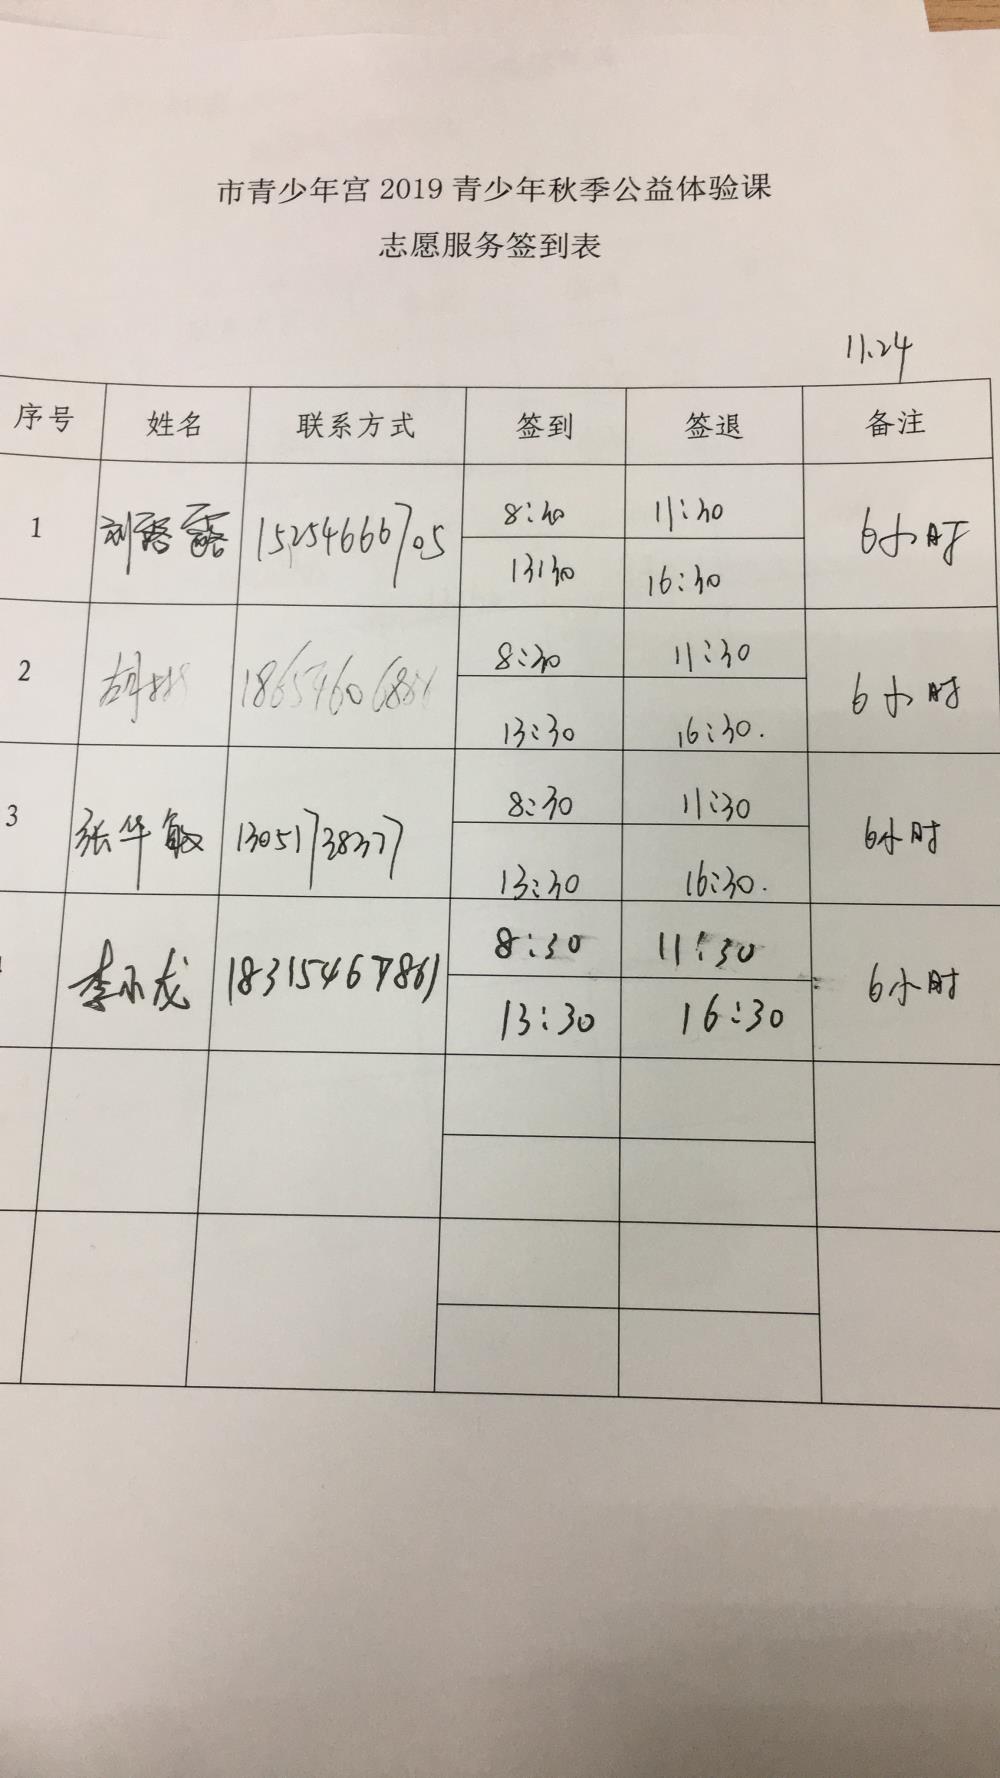 市青少年宫 2019 青少年秋季公益体验课
志愿服务签到表
11.24
序号 姓名 联系方式 签到 签退 备注
1 刘露露 15254666705 8:30 11:30 6小时
13:30 16:30
2 8:30 11:30 6小时
13:30 16:30.
3 张华敏 13051738377 8:30 11:30 6小时
13:30 16:30.
李小龙 18315467861 8:30 11:30 6小时
13:30 16:30